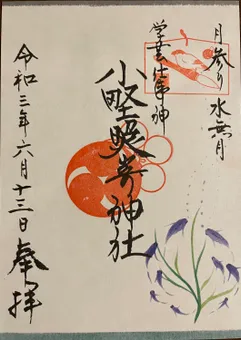 月参り 水無月
学芸仕事神
小野照崎神社
令和三年六月十三日
奉拝